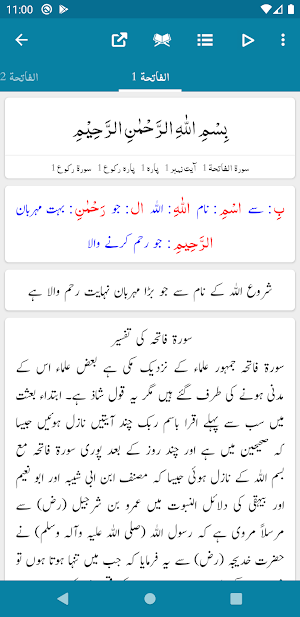 11:00
الفاتحة 1
الفاتحة 2
بِسْمِ اللّٰهِ الرَّحْمٰنِ الرَّحِيْمِ
سورة الفاتحة 1 آیت نمبر 1 پارہ 1 پارہ رکوع 1 سورۃ رکوع 1
بِ : سے اسْمِ : نام اللّٰهِ : اللہ ال : جو رَحْمٰنِ : بہت مہربان
الرَّحِيْمِ : جو رحم کرنے والا
شروع اللہ کے نام سے جو بڑا مہربان نہایت رحم والا ہے
سورۃ فاتحہ کی تفسیر
سورۃ فاتحہ جمہور علماء کے نزدیک مکی ہے بعض علماء اس کے
مدنی ہونے کی طرف گئے ہیں مگر یہ قول شاذ ہے۔ ابتداء بعثت
میں سب سے پہلے اقرا باسم ربک چند آیتیں نازل ہوئیں جیسا
کہ صحیحین میں ہے اور چند روز کے بعد پوری سورۃ فاتحہ مع
بسم اللہ کے نازل ہوئی جیسا کہ مصنف ابن ابی شیبہ اور ابو نعیم
اور بیہقی کی دلائل النبوت میں عمرو بن شرجیل (رض) سے
مرسلاً مروی ہے کہ رسول اللہ (صلی اللہ علیہ وآلہ وسلم) نے
حضرت خدیجہ (رض) سے یہ فرمایا کہ جب میں تنہا ہوتا ہوں تو